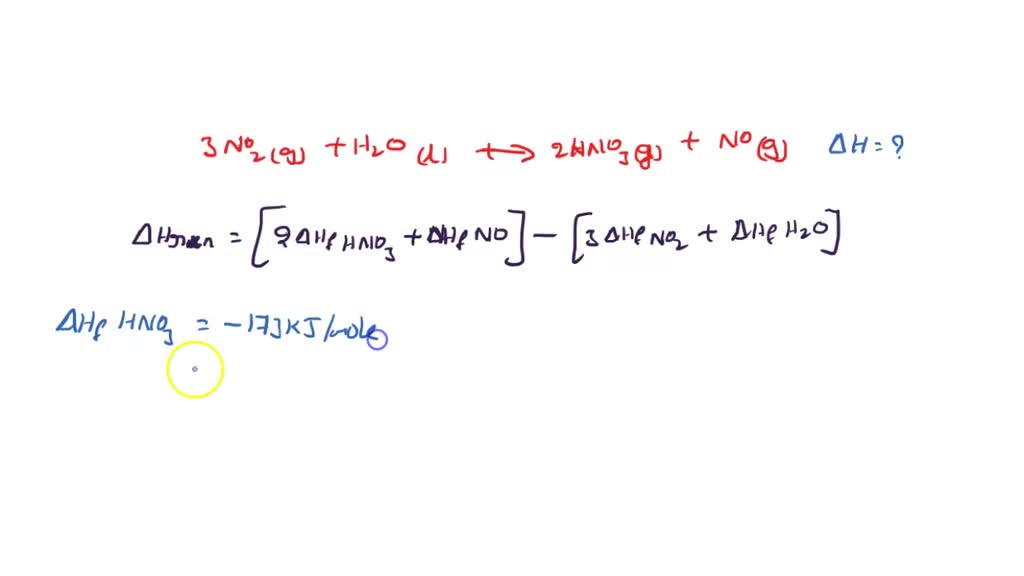 3NO₂(g) + H₂O (l) ↔ 2HNO₃(g) + NO(g) ΔH = ?
ΔHrxn = [2ΔHf HNO₃ + ΔHf NO] − [3ΔHf NO₂ + ΔHf H₂O]
ΔHf HNO₃ = −173KJ/mole